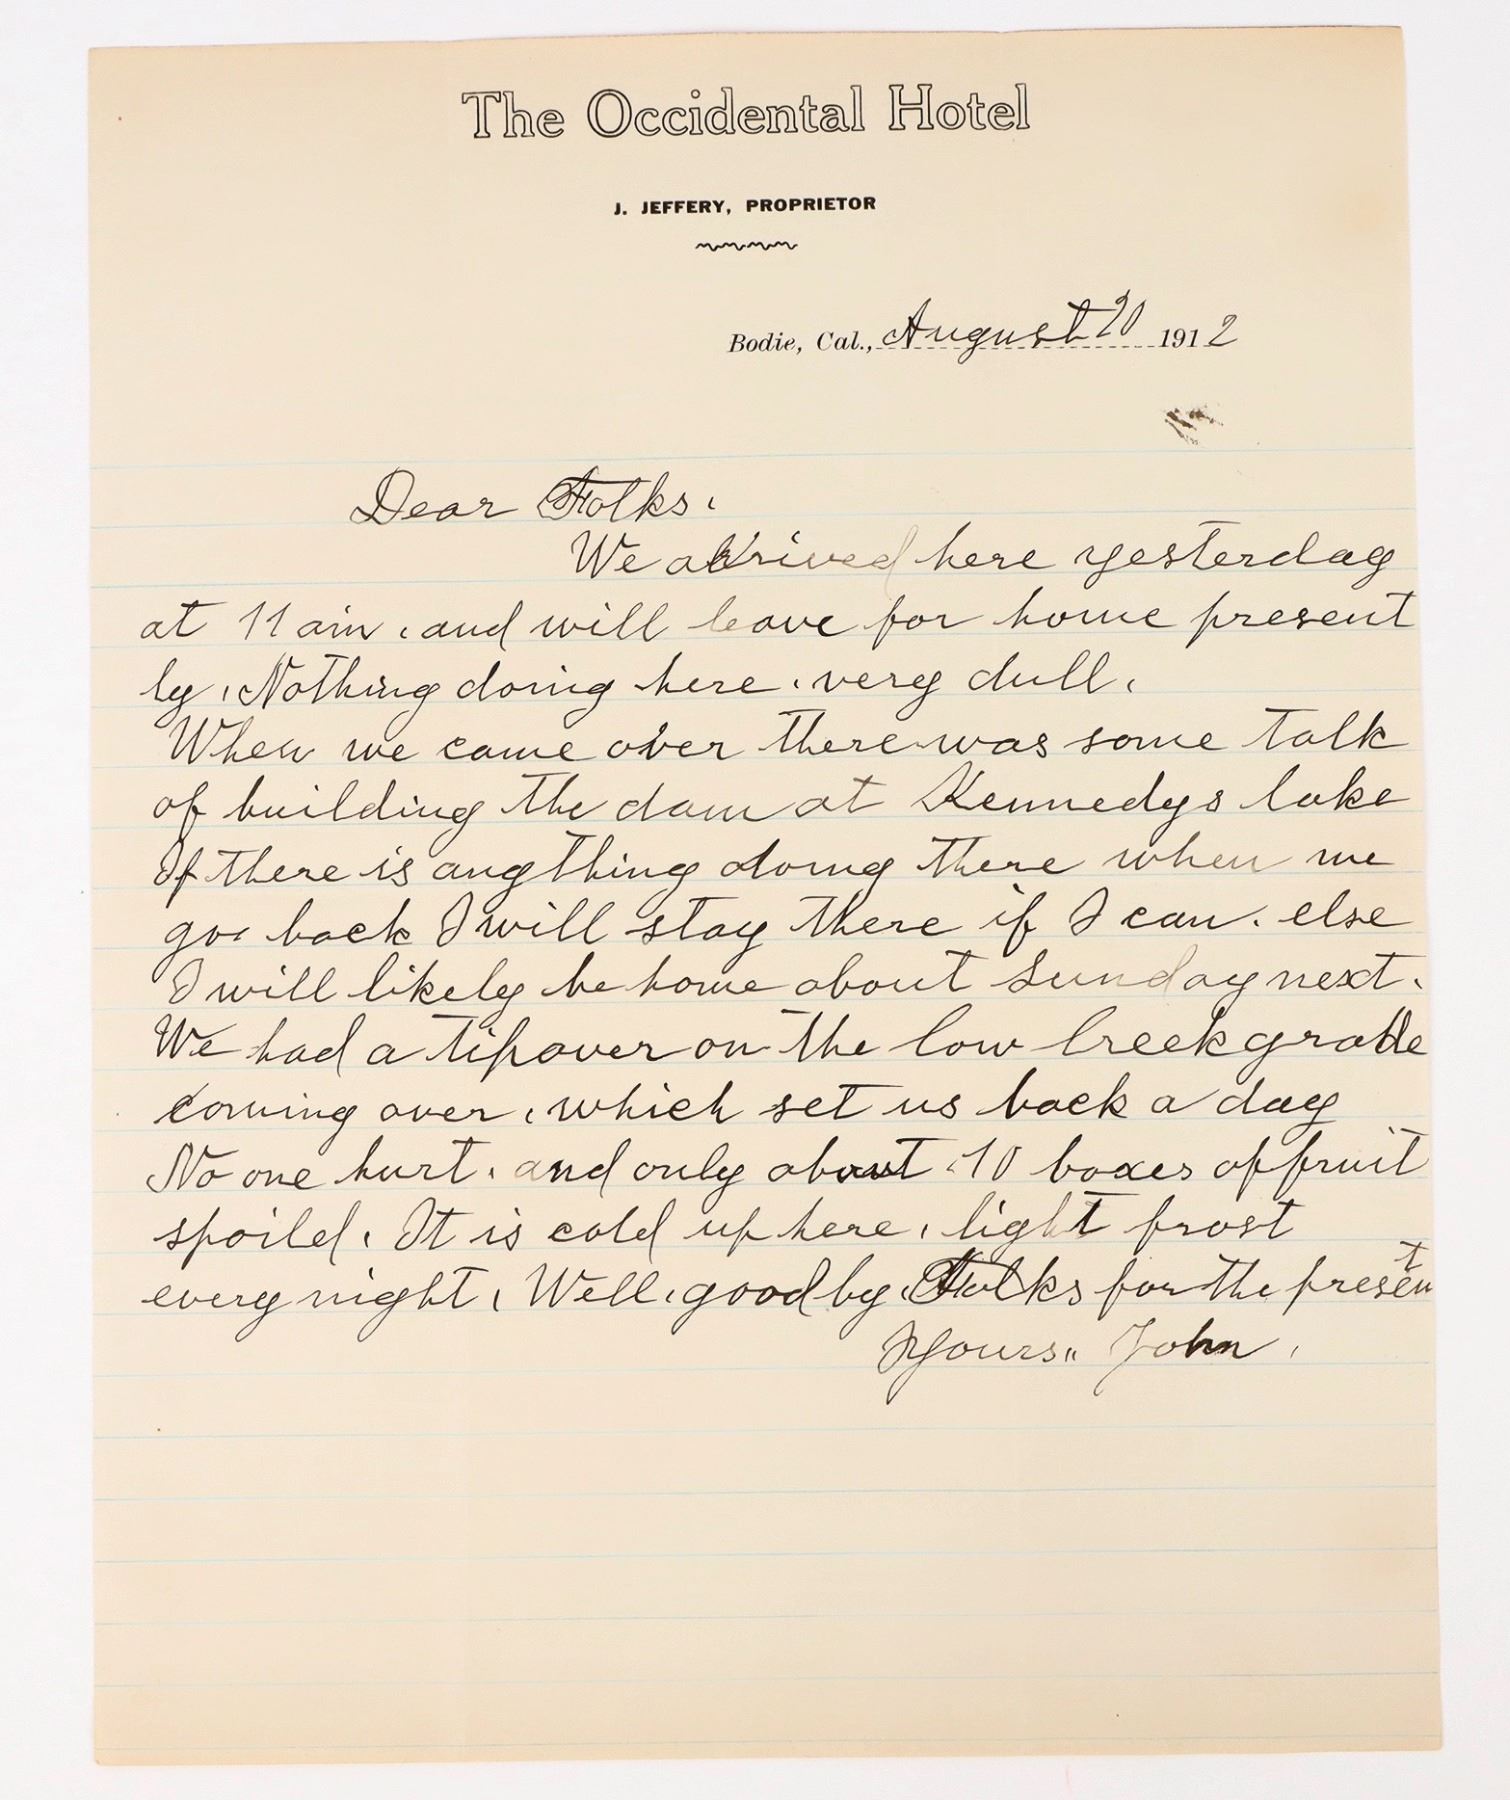 The Occidental Hotel
J. JEFFERY, PROPRIETOR
Bodie, Cal., August 20 1912
Dear Folks.
We arrived here yesterday
at 11 am. and will leave for home present
ly. Nothing doing here. very dull.
When we came over there was some talk
of building the dam at Kennedys lake
If there is anything doing there when we
go back I will stay there if I can. else
I will likely be home about Sunday next.
We had a tipover on the Cow Creek grade
coming over. which set us back a day
No one hurt. and only about 10 boxes of fruit
spoild. It is cold up here. light frost
every night. Well. good by. Folks for the present
Yours" John.